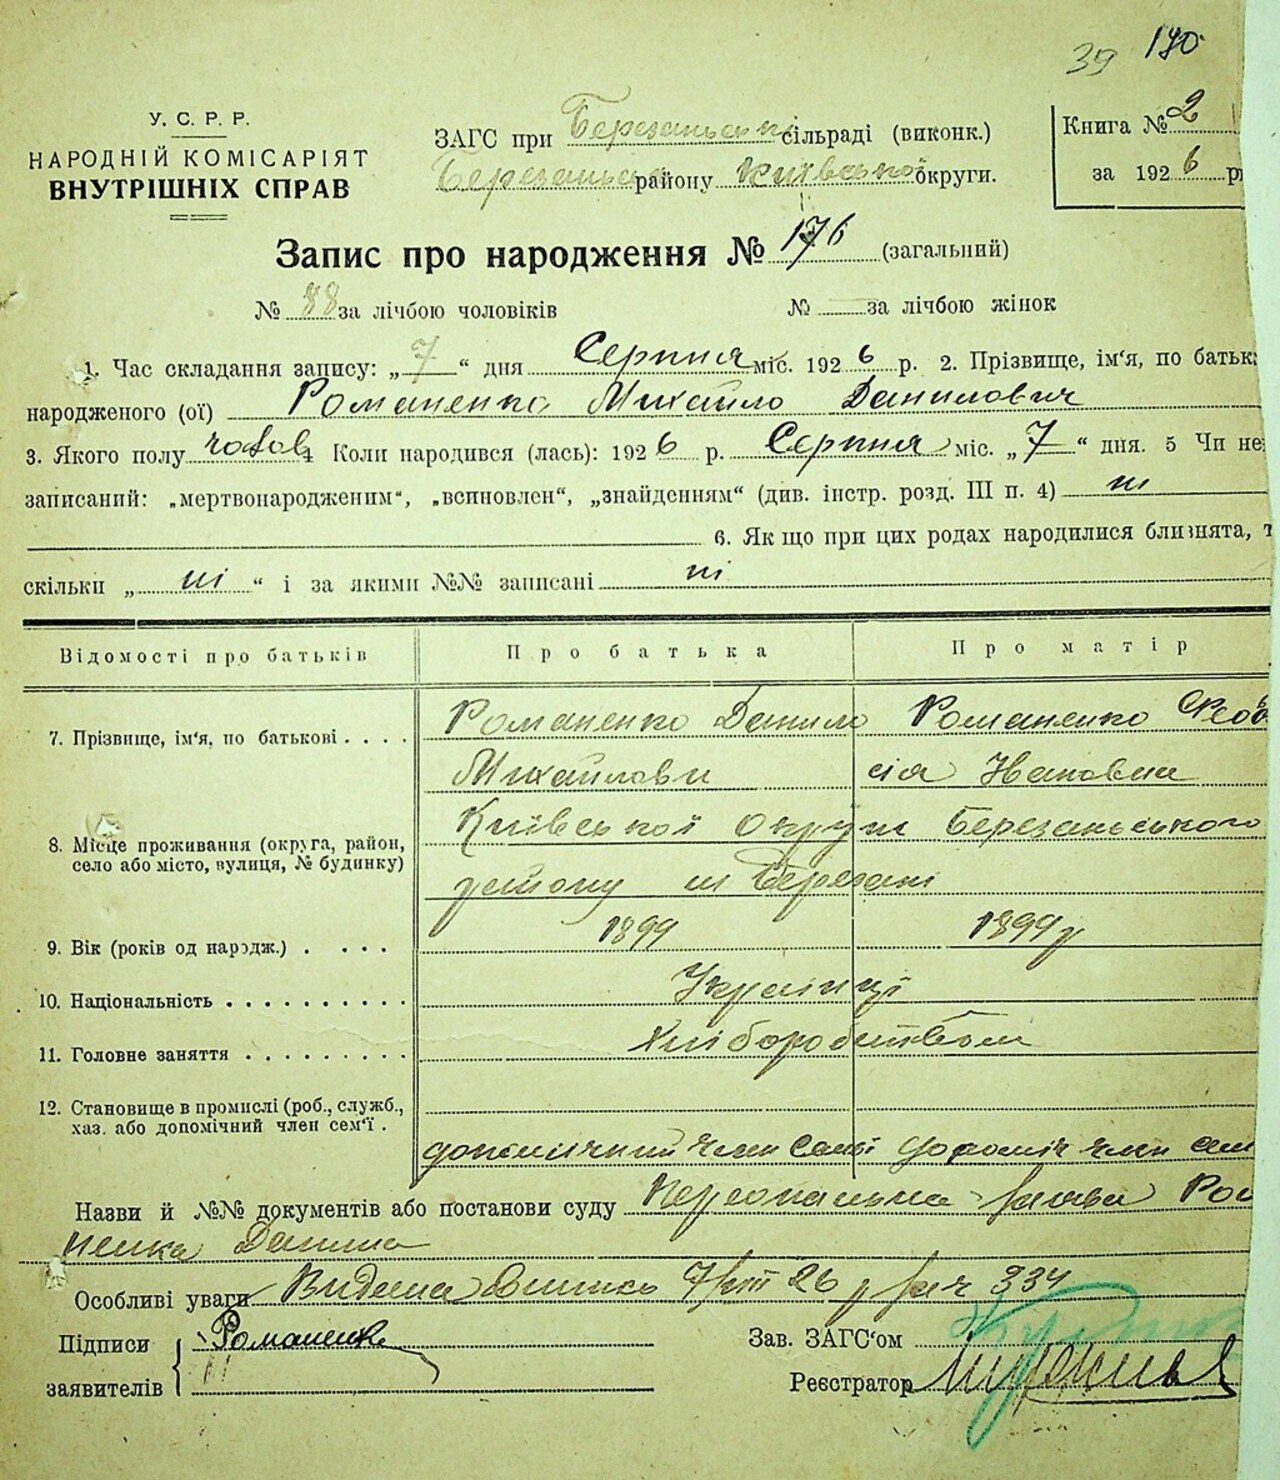 39 190
У. С. Р. Р.
НАРОДНІЙ КОМІСАРІЯТ
ВНУТРІШНІХ СПРАВ
ЗАГС при Березанськ сільраді (виконк.)
Березанськ району Київської округи.
Книга № 2
за 1926 р
Запис про народження № 176 (загальний)
№ 88 за лічбою чоловіків № за лічбою жінок
1. Час складання запису: „7“ дня Серпня міс. 1926 р. 2. Прізвище, ім'я, по батьк
народженого (ої) Романенко Михайло Данилович
3. Якого полу чолов 4 Коли народився (лась): 1926 р. Серпня міс. „7“ дня. 5 Чи не
записаний: „мертвонародженим“, „всиновлен“, „знайденням“ (див. інстр. розд. III п. 4) ні
6. Як що при цих родах народилися близнята, т
скільки „ні“ і за якими №№ записані ні
Відомості про батьків Про батька Про матір
7. Прізвище, ім'я, по батькові . . . . Романенко Данило Романенко Феодо
Михайлови сія Ивановна
8. Місце проживання (округа, район, село або місто, вулиця, № будинку) Київської Округи Березанського
району м Березані
9. Вік (років од народж.) . . . . 1899 1899 р
10. Національність . . . . . . . . . . Українці
11. Головне заняття . . . . . . . . . Хліборобством
12. Становище в промислі (роб., служб.,
хаз. або допомічний член сем'ї .
допомічний член семьї допоміч член сем
Назви й №№ документів або постанови суду Персональна заява Ром
ненка Данила
Особливі уваги Видана 7/VIII 26 р за ч 334
Підписи Романенко
заявителів
Зав. ЗАГС'ом
Реєстратор